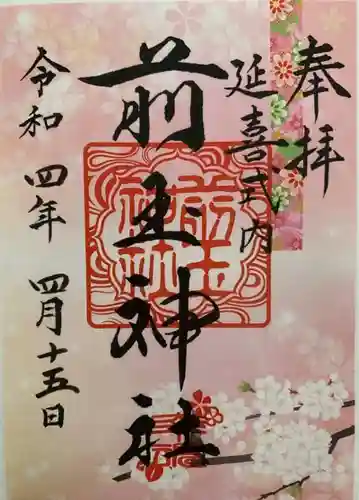 奉拝
延喜式内
前玉神社
令和四年四月十五日
前玉
神社